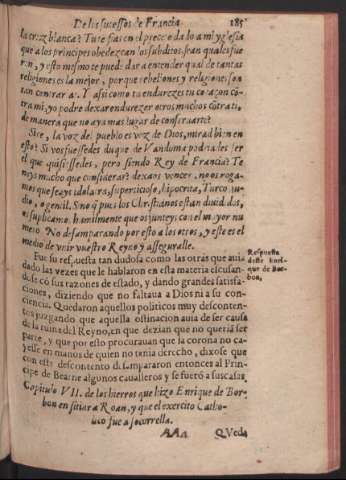 De los sucessos de Francia. 185
la cruz blanca? Tu te fias en el precedado a mi yglesia
que a los principes obedezcan los subditos, sean quales fue
ren, y esto mesmo te puede dar a entender qual de tantas
religiones es la mejor, porque rebeliones y religion son
tan contrarias. Y assi como tu endureces tu coraçon cõ
tra mi, yo podre dexar endurezer otros muchos cõtra ti,
de manera que no aya mas lugar de conseruarte?
Sire, la voz del pueblo es voz de Dios, mirad bien en
esto? Si vos fuessedes duque de Vandoma podriades ser
el que quisiessedes, pero siendo Rey de Francia? Te
neys mucho que considerar? dexaos vencer, no os roga-
mos que seays idolatra, supersticioso, hipocrita, Turco, iu-
dio, o gentil. Sino q̃ pues los Christianos estan diuididos,
os suplicamos humilmente que os junteys con el mayor nu
mero. No desamparando por esto a los otros, y este es el
medio de vnir vuestro Reyno y asseguralle.
Fue su respuesta tan dudosa como las otras que auia
dado las vezes que le hablaron en esta materia escusan-
dose cõ sus razones de estado, y dando grandes satisfa-
ciones, diziendo que no faltaua a Dios ni a su con-
ciencia. Quedaron aquellos politicos muy desconten-
tos juzgando que aquella ostinacion auia de ser causa
de la ruina del Reyno, en que dezian que no querian ser
parte, y que por esto procurauan que la corona no ca-
yesse en manos de quien no tenia derecho, dixose que
con este descontento desampararon entonces al Prin-
cipe de Bearne algunos caualleros y se fuerõ a sus casas.
Respuesta
deste Enri-
que de Bor-
bon.
Capitulo VII. de los hierros que hizo Enrique de Bor-
bon en sitiar a Roan, y que el exercito Catho-
lico fue a socorrella.
AAa Q Veda